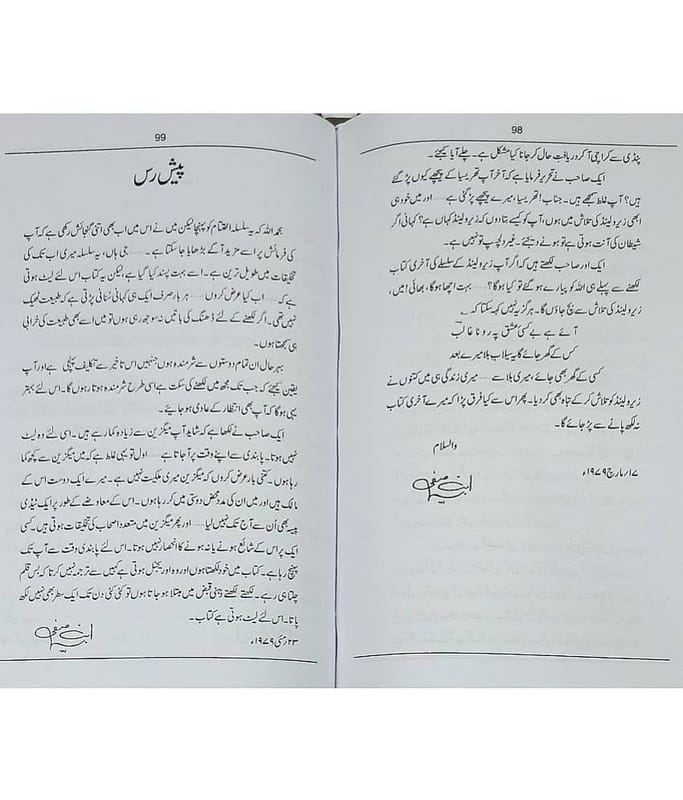 98
پنڈی سے کراچی آکر دریافت حال کر جانا کیا مشکل ہے۔ چلے آیا کیجئے۔
ایک صاحب نے تحریر فرمایا ہے کہ آخر آپ تھریسیا کے پیچھے کیوں پڑ گئے
ہیں؟ آپ غلط سمجھے ہیں۔ جناب! تھریسیا، میرے پیچھے پڑ گئی ہے..... اور میں خود ہی
ابھی زیرو لینڈ کی تلاش میں ہوں، آپ کو کیسے بتادوں کہ زیرو لینڈ کہاں ہے؟ کہانی اگر
شیطان کی آنت ہوتی ہے تو ہونے دیجئے۔ غیر دلچسپ تو نہیں ہے۔
ایک اور صاحب لکھتے ہیں کہ اگر آپ زیرو لینڈ کے سلسلے کی آخری کتاب
لکھنے سے پہلے ہی اللہ کو پیارے ہو گئے تو کیا ہوگا؟..... بہت اچھا ہوگا، بھائی! میں،
زیرو لینڈ کی تلاش سے بچ جاؤں گا۔ ہرگز یہ نہیں کہہ سکتا کہ۔
آئے ہے بے کسی عشق پہ رونا غالبؔ
کس کے گھر جائے گا یہ سیلاب بلا میرے بعد
کسی کے گھر بھی جائے، میری بلا سے..... میری زندگی ہی میں کتنوں نے
زیرو لینڈ کو تلاش کر کے تباہ بھی کر دیا۔ پھر اس سے کیا فرق پڑا کہ میرے آخری کتاب
نہ لکھ پانے سے پڑ جائے گا۔
والسلام
ابن صفی
۱۷؍مارچ ۱۹۷۹ء
99
پیش رس
بحمد اللہ کہ یہ سلسلہ اختتام کو پہنچا لیکن میں نے اس میں اب بھی اتنی گنجائش رکھی ہے کہ آپ
کی فرمائش پر اسے مزید آگے بڑھایا جا سکتا ہے۔..... جی ہاں، یہ سلسلہ میری اب تک کی
تخلیقات میں طویل ترین ہے۔ اسے بہت پسند کیا گیا ہے، لیکن یہ کتاب اس لئے لیٹ ہوتی
ہے کہ..... اب کیا عرض کروں..... ہر بار صرف ایک ہی کہانی سنانی پڑتی ہے کہ طبیعت ٹھیک
نہیں تھی۔ اگر لکھنے کے لئے ڈھنگ کی باتیں نہ سوجھ رہی ہوں تو میں اسے بھی طبیعت کی خرابی
ہی سمجھتا ہوں۔
بہر حال ان تمام دوستوں سے شرمندہ ہوں جنہیں اس تاخیر سے تکلیف پہنچی ہے اور آپ
یقین کیجئے کہ جب تک مجھ میں لکھنے کی سکت ہے اسی طرح شرمندہ ہوتا رہوں گا۔ اس لئے بہتر
یہی ہوگا کہ آپ بھی انتظار کے عادی ہو جائیے۔
ایک صاحب نے لکھا ہے کہ شاید آپ میگزین سے زیادہ کما رہے ہیں۔ اسی لئے وہ لیٹ
نہیں ہوتا۔ پابندی سے اپنے وقت پر آجاتا ہے..... اول تو یہی غلط ہے کہ میں میگزین سے کچھ کما
رہا ہوں۔ کتنی بار عرض کروں کہ میگزین میری ملکیت نہیں ہے۔ میرے ایک دوست اس کے
مالک ہیں اور میں ان کی مدد محض دوستی میں کر رہا ہوں۔ اس کے معاوضے کے طور پر ایک نیڈی
پیسہ بھی اُن سے آج تک نہیں لیا..... اور پھر میگزین میں متعدد اصحاب کی تخلیقات ہوتی ہیں۔ کسی
ایک پر اس کے شائع ہونے یا نہ ہونے کا انحصار نہیں ہوتا۔ اس لئے پابندی وقت سے آپ تک
پہنچ رہا ہے۔ کتاب میں خود لکھتا ہوں اور وہ اوریجنل ہوتی ہے کہیں سے ترجمہ نہیں کرتا کہ بس قلم
چلتا ہی رہے۔ لکھتے لکھتے ذہنی قبض میں مبتلا ہو جاتا ہوں تو کئی کئی دن تک ایک سطر بھی نہیں لکھ
پاتا۔ اس لئے لیٹ ہوتی ہے کتاب۔
ابن صفی
۲۳؍مئی ۱۹۷۹ء